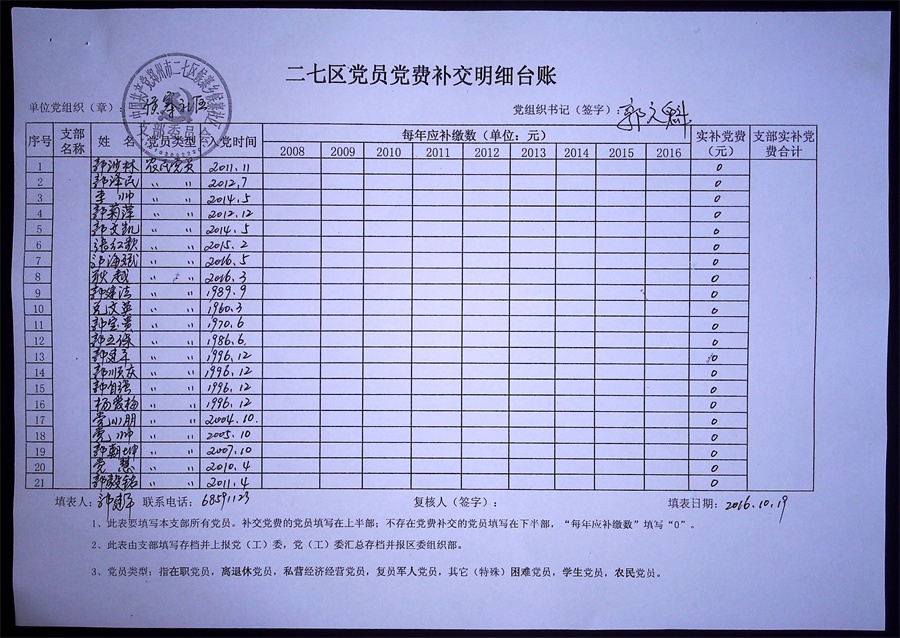 二七区党员党费补交明细台账
单位党组织（章）： 侯寨社区 党组织书记（签字）：
序号 支部名称 姓 名 党员类型 入党时间 每年应补缴数（单位：元） 实补党费（元） 支部实补党费合计
2008 2009 2010 2011 2012 2013 2014 2015 2016
1 农民党员 2011.11 0
2 郭泽民 〃 〃 2012.7 0
3 李 帅 〃 〃 2014.5 0
4 郭菊萍 〃 〃 2012.12 0
5 郭文凯 〃 〃 2014.5 0
6 张红歌 〃 〃 2015.2 0
7 〃 〃 2016.5 0
8 耿 越 〃 〃 2016.3 0
9 〃 〃 1989.9 0
10 〃 〃 1960.3 0
11 郭宝贵 〃 〃 1970.6 0
12 郭立保 〃 〃 1986.6 0
13 郭建军 〃 〃 1996.12 0
14 郭顺庆 〃 〃 1996.12 0
15 郭自强 〃 〃 1996.12 0
16 杨爱梅 〃 〃 1996.12 0
17 党小朋 〃 〃 2004.10. 0
18 党 帅 〃 〃 2005.10 0
19 郭朝坤 〃 〃 2007.10 0
20 党 慧 〃 〃 2010.4 0
21 〃 〃 2011.4 0
填表人： 联系电话：68591123 复核人（签字）： 填表日期：2016.10.19
1、此表要填写本支部所有党员。补交党费的党员填写在上半部；不存在党费补交的党员填写在下半部，“每年应补缴数”填写“0”。
2、此表由支部填写存档并上报党（工）委，党（工）委汇总存档并报区委组织部。
3、党员类型：指在职党员，离退休党员，私营经济经营党员，复员军人党员，其它（特殊）困难党员，学生党员，农民党员。